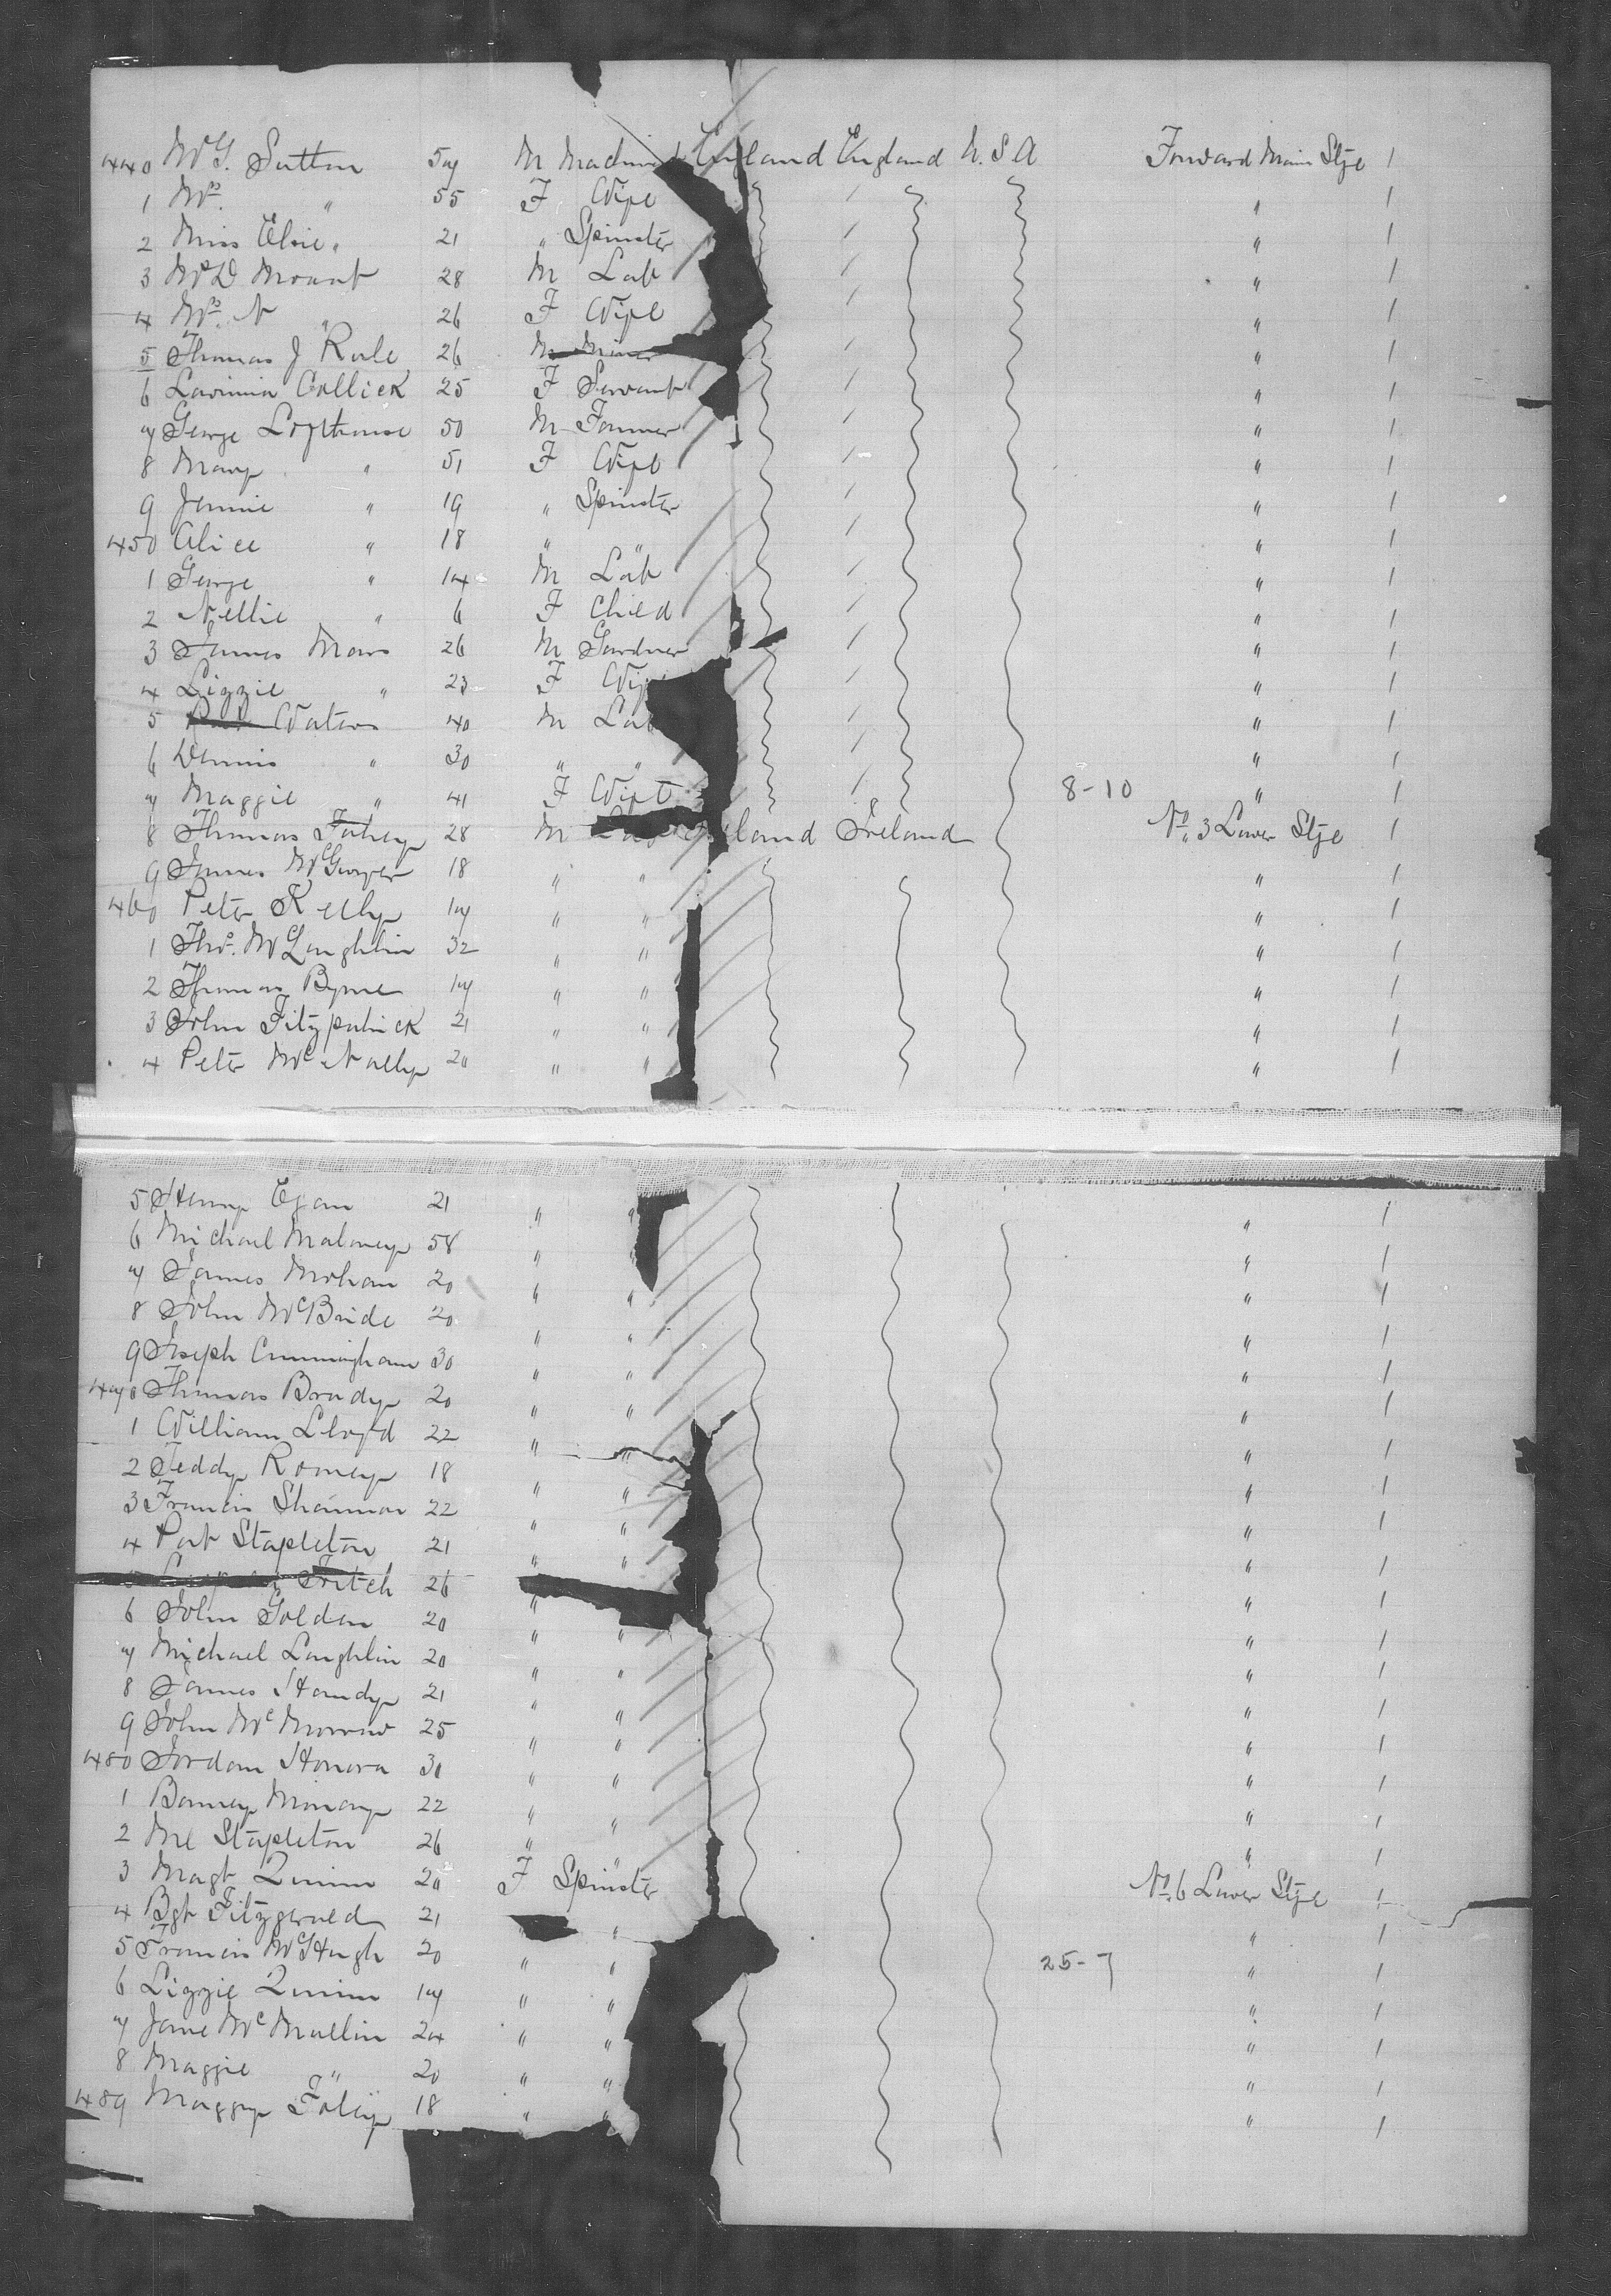 440 Mr G. Sutton 57 M Machinist England England U.S.A Forward Main Stge 1
1 Mrs " 55 F Wife " 1
2 Miss Elsie " 21 " Spinster " 1
3 Mr D Mount 28 M Lab " 1
4 Mrs N " 26 F Wife " 1
5 Thomas J Rule 26 M Miner " 1
6 Lavinia Collick 25 F Servant " 1
7 George Lofthouse 50 M Farmer " 1
8 Mary " 51 F Wife " 1
9 Jennie " 19 " Spinster " 1
450 Alice " 18 " " 1
1 George " 14 M Lab " 1
2 Nellie " 6 F Child " 1
3 James Mars 26 M Gardner " 1
4 Lizzie " 23 F Wife " 1
5 Waters 40 M Lab " 1
6 Dennis " 30 " " " 1
7 Maggie " 41 F Wife 8-10 " 1
8 Thomas Fahey 28 M Lab Ireland Ireland No. 3 Lower Stge 1
9 James 18 " " " 1
460 Peter Kelly 17 " " " 1
1 Thos. McLaughlin 32 " " " 1
2 Thomas Byrne 17 " " " 1
3 John Fitzpatrick 21 " " " 1
4 Peter McNally 20 " " " 1
5 Henry Egan 21 " " " 1
6 Michael Maloney 58 " " 1
7 James Mohan 20 " " " 1
8 John McBride 20 " " " 1
9 Joseph Cunningham 30 " " " 1
470 Thomas Brady 20 " " " 1
1 William Lloyd 22 " " " 1
2 Teddy Romey 18 " " " 1
3 Francis Shannon 22 " " " 1
4 Pat Stapleton 21 " " " 1
5 Fitch 26 " 1
6 John Golden 20 " " " 1
7 Michael Laughlin 20 " " " 1
8 James Handy 21 " " " 1
9 John McMorrow 25 " " " 1
480 Jordan Honora 30 " " " 1
1 Barney 22 " " " 1
2 Ml Stapleton 26 " " " 1
3 Magt Quinn 20 F Spinster No. 6 Lower Stge 1
4 Bgt Fitzgerald 21 " " 1
5 Francis McHugh 20 " " 25-7 " 1
6 Lizzie Quinn 17 " " " 1
7 Jane McMullin 24 " " " 1
8 Maggie " 20 " " " 1
489 Maggy Foley 18 " " " 1